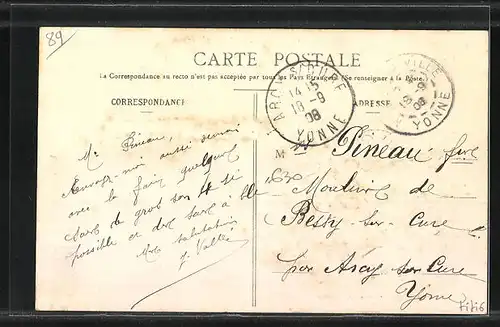 89
CARTE POSTALE
La Correspondance au recto n'est pas acceptée par tous les Pays Étrangers (Se renseigner à la Poste.)
CORRESPONDANCE
ADRESSE
ARCY-S-CURE
14 15
18 -9
08
YONNE
VILLE
08
YONNE
Mr Pineau,
Envoyez-moi aussi
avec la farine quelques
sacs de gros son
possible et des sacs à blé
Mes salutations
J. Vallée
M Pineau
Moulins de
Bessy-sur-Cure
par Arcy sur Cure
Yonne